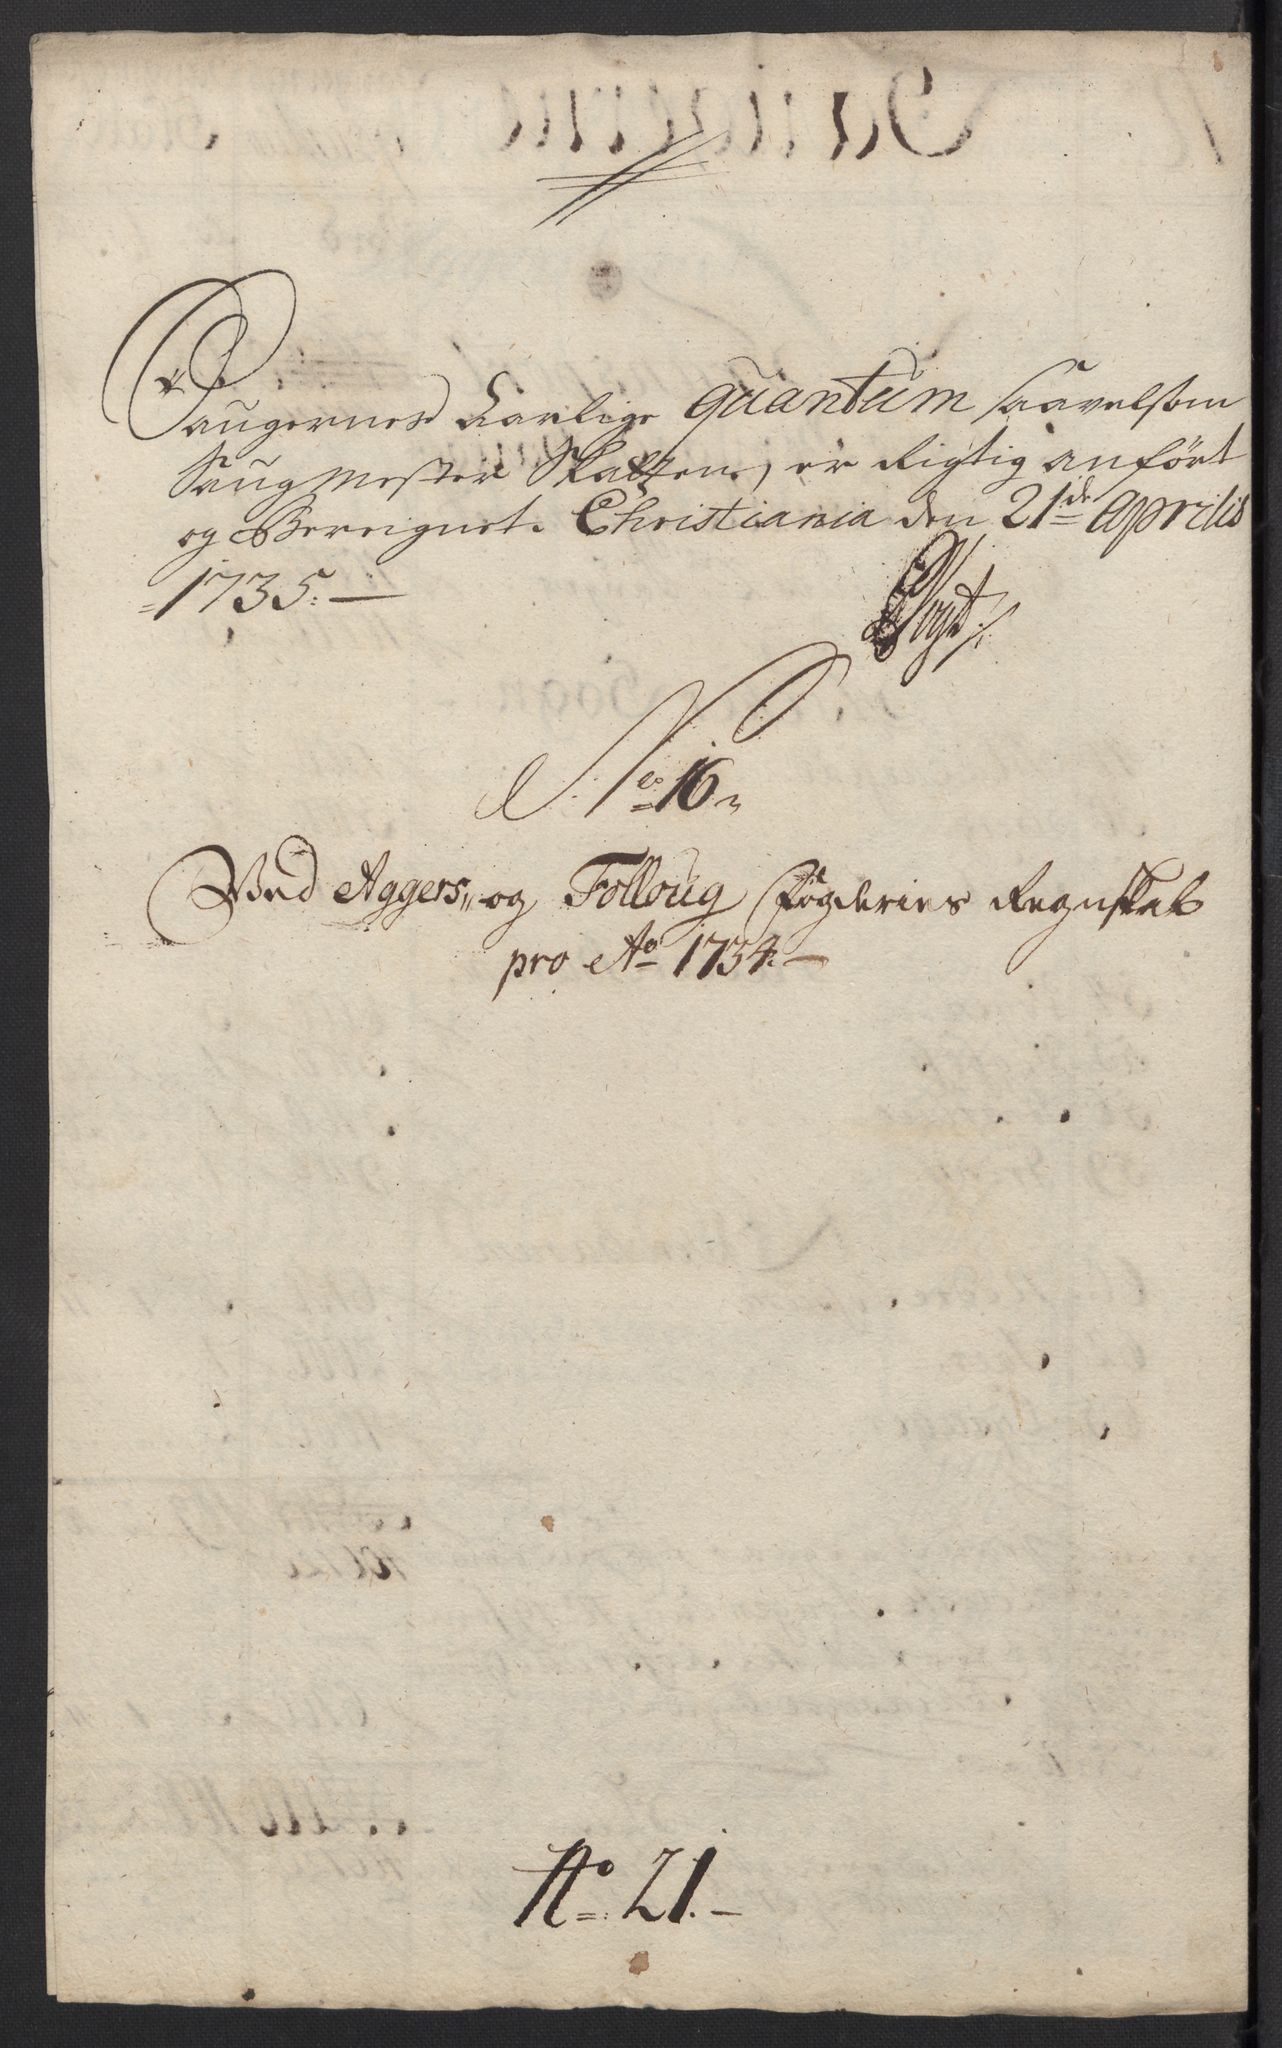 Saugernes Aarlige quantum saavelsom
Saug Mester Skatten, er Rigtig anført
og Bereignet. Christiania den 21de Aprilis
1735.
Vogt
No 16
Ved Aggers og Folloug Fogderies Regnskab
pro Ao 1734.
No. 21.